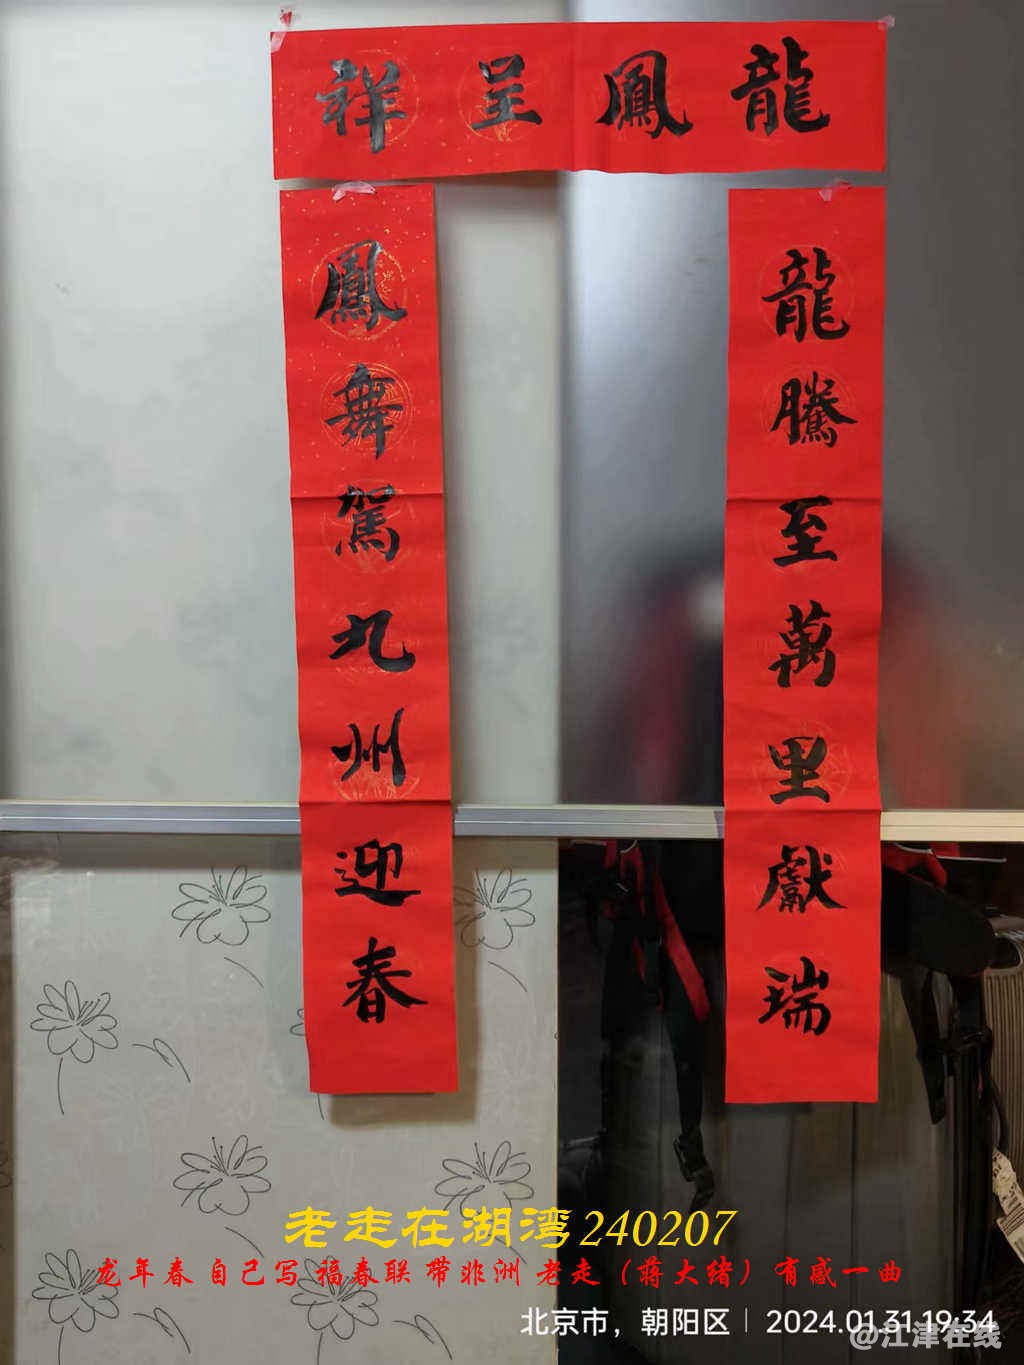 龍鳳呈祥
龍騰至萬里獻瑞
鳳舞駕九州迎春
老走在湖湾240207
龙年春 自己写 福春联 带非洲 老走（蒋大绪）有感一曲
北京市，朝阳区 | 2024.01.31 19:34
@江津在线